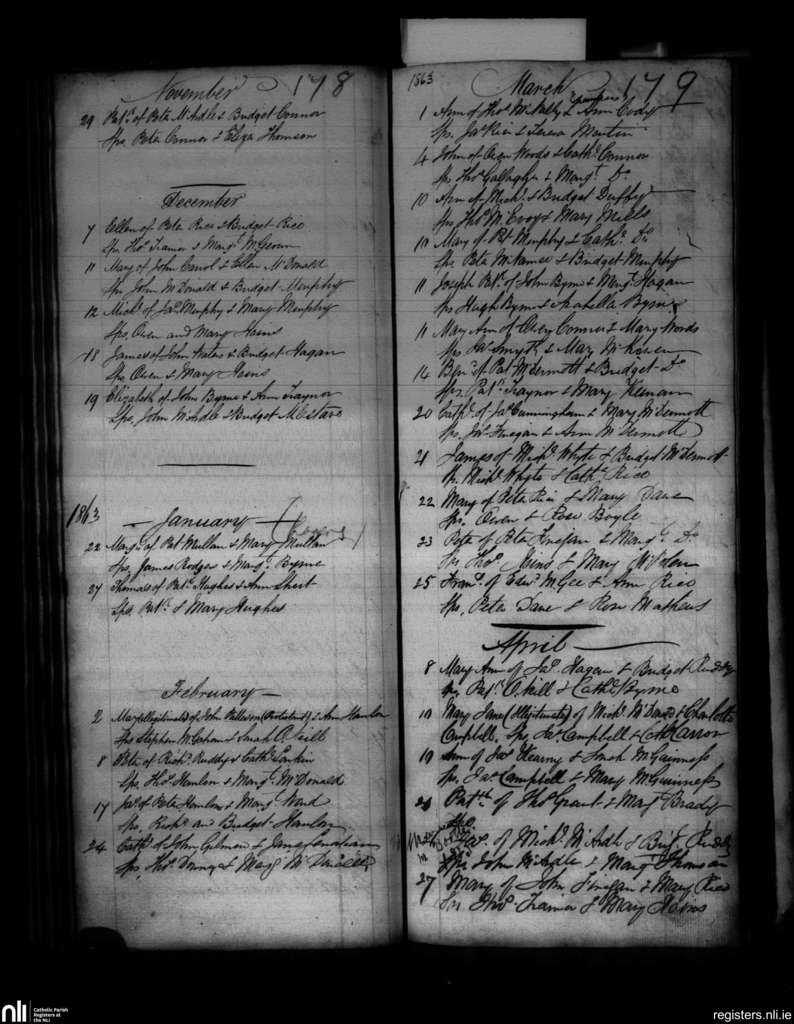 November 178
29 Patk. of Peter McArdle & Bridget Connor
Sps. Peter Connor & Eliza Thomson
December
7 Ellen of Peter Rice & Bridget Rice
Sps. Thos. Trainor & Margt. McGeown
11 Mary of John Carrol & Ellen McDonald
Sps. John McDonald & Bridget Murphy
12 Michl. of Jas. Murphy & Mary Murphy
Sps. Owen and Mary
13 James of John Waters & Bridget Hagan
Sps. Owen & Mary
19 Elizabeth of John Byrne & Ann Traynor
Sps. John McArdle & Bridget
1863
January
22 Margt. of Pat Mullan & Mary Mullan
Sps. James Rodgers & Margt. Byrne
27 Thomas of Patk. Hughes & Ann Short
Sps. Patk. & Mary Hughes
February
2 Mary (illegitimate) of John Patterson (Protestant) & Ann Hanlon
Sps. Stephen McCahan & Sarah O'Neill
8 Peter of Richd. Ruddy & Cathe. Larkin
Sps. Thos. Hanlon & Margt. McDonald
17 Jas. of Peter Hanlon & Margt. Ward
Sps. Richd. and Bridget Hanlon
24 Cathe. of John & Jane Lenahan
Sps. Thos. & Margt. McDonald
1863 March 179
1 Ann of Thos. McNally & Ann Cody
Sps. Jas. Rice & Teresa Martin
4 John of Owen Woods & Cathe. Connor
Sps. Thos. Gallagher & Margt. Do.
10 Ann of Michl. & Bridget Duffy
Sps. Thos. McEvoy & Mary Mills
10 Mary of Pat Murphy & Cathe. Do.
Sps. Peter McNamee & Bridget Murphy
11 Joseph Patk. of John Byrne & Margt. Hagan
Sps. Hugh Byrne & Arabella Byrne
11 Mary Ann of Owen Connor & Mary Woods
Sps. Jas. Smyth & Mary McKeown
14 of Pat McDermott & Bridget Do.
Sps. Patk. Traynor & Mary Keenan
20 Cathe. of Jas. Cunningham & Mary McDermott
Sps. Jas. Finegan & Ann McDermott
21 James of Michl. Whyte & Bridget McDermott
Sps. Michl. Whyte & Cathe. Rice
22 Mary of Peter Rice & Mary Dane
Sps. Owen & Rose Boyle
23 Peter of Peter Finegan & Margt. Do.
Sps. Thos. & Mary
25 Frans. of Edwd. McGee & Ann Rice
Sps. Peter Dane & Rose Mathews
April
8 Mary Ann of Jas. Hagan & Bridget Ruddy
Sps. Patk. O'Neill & Cathe. Byrne
10 Mary Jane (illegitimate) of Michl. & Charlotte
Campbell, Sps. Jas. Campbell &
19 Ann of Jas. Kearney & Sarah McGuinness
Sps. Jas. Campbell & Mary McGuinness
21 Patk. of Thos. Grant & Margt. Brady
of Michl. McArdle & Bridgt. Ruddy
Sps. John McArdle & Margt. Thomson
27 Mary of John Finegan & Mary Rice
Sps. Thos. Trainor & Mary
nli
Catholic Parish
Registers at
the NLI
registers.nli.ie